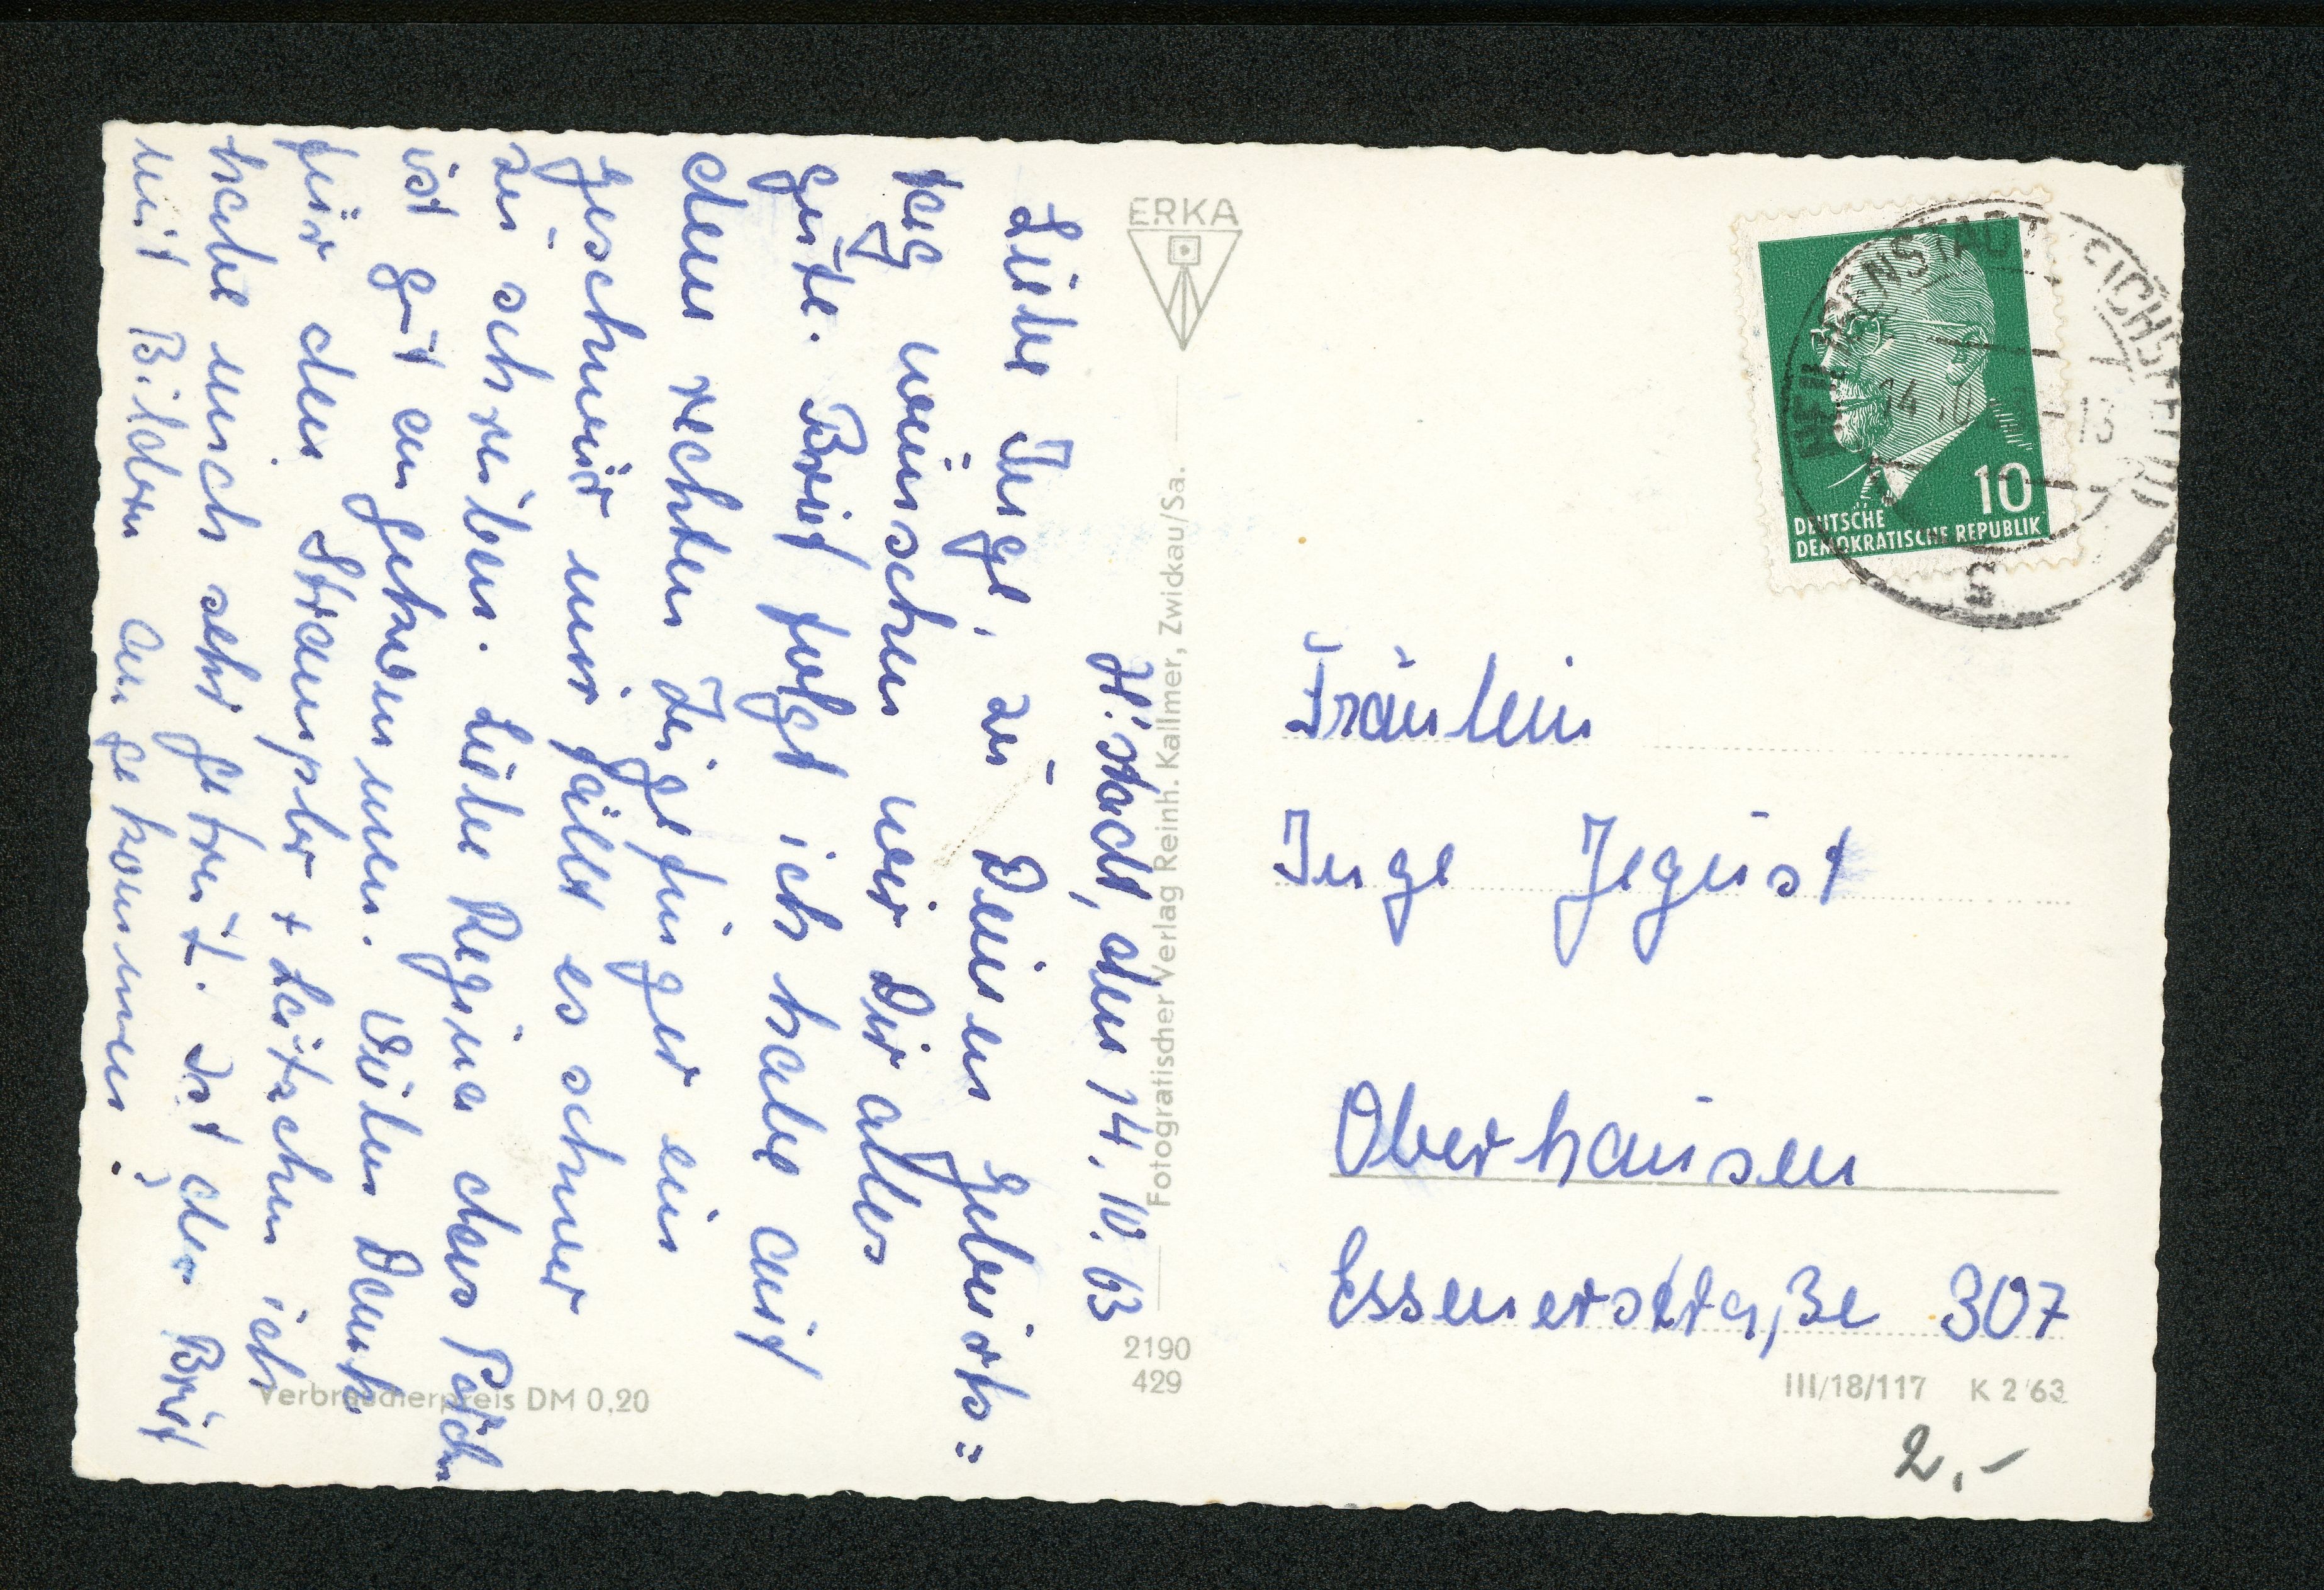 H'stadt, den 14.10.63
Liebe Inge, zu Deinen Geburts=
tag wünschen wir Dir alles
gute. Brief folgt ich habe auf
dem rechten Zeigefinger ein
Geschwür nun fällt es schwer
zu schreiben. Liebe Regina das Pätch.
ist gut angekommen. Vielen Dank
für den Strampler + Lätzchen ich
habe mich sehr gefreut. Ist der Brief
mit Bildern angekommen?
ERKA
Fotografischer Verlag Reinh. Kallmer, Zwickau/Sa.
2190
429
Verbraucherpreis DM 0,20
HEILIGENSTADT EICHSFELD
14.
-13
S
10
DEUTSCHE
DEMOKRATISCHE REPUBLIK
Fräulein
Inge Jegust
Oberhausen
Essenerstraße 307
III/18/117 K 2/63
2,-